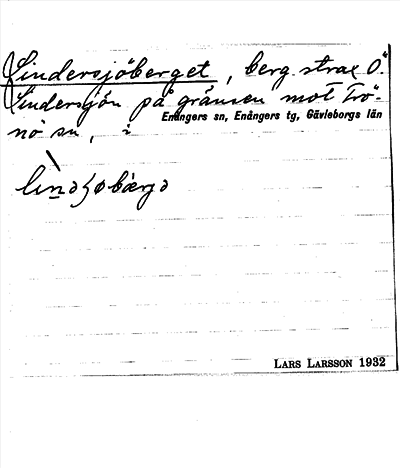 Lindersjöberget, berg strax O.
Lindersjön på gränsen mot Trö-
Enångers sn, Enångers tg, Gävleborgs län
nö sn, i
LARS LARSSON 1932